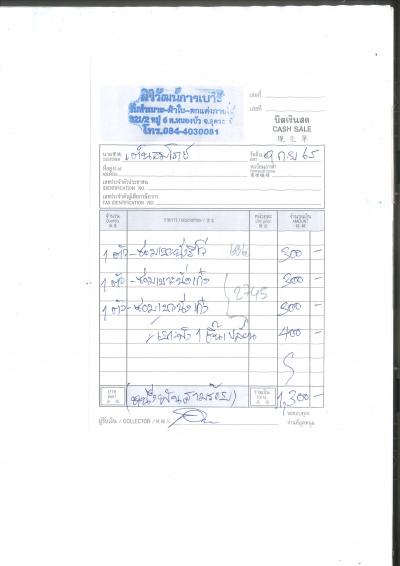 สิริวัฒน์การเบาะ
321/2 หมู่ 6 ต.หนองบัว
โทร.084-4030081
เล่มที่
เลขที่
บิลเงินสด
CASH SALE
現之單
นาม
CUSTOMER
วันที่
DATE
65
ที่อยู่
ADDRESS
เลขประจำตัวประชาชน
IDENTIFICATION NO.
เลขประจำตัวผู้เสียภาษีอากร
TAX IDENTIFICATION NO.
จำนวน
Quantity
รายการ / DESCRIPTION
หน่วยละ
UNIT PRICE
จำนวนเงิน
AMOUNT
1 ตัว - ซ่อมเบาะนั่ง 300 -
1 ตัว - ซ่อมเบาะนั่งเก๋ง 300 -
2745
1 ตัว - ซ่อมเบาะนั่งเก๋ง 300 -
400 -
บาท
BAHT
(หนึ่งพันสามร้อย)
รวมเงิน
TOTAL
1,300 -
ผู้รับเงิน / COLLECTOR
ขอขอบคุณ
ท่านที่อุดหนุน